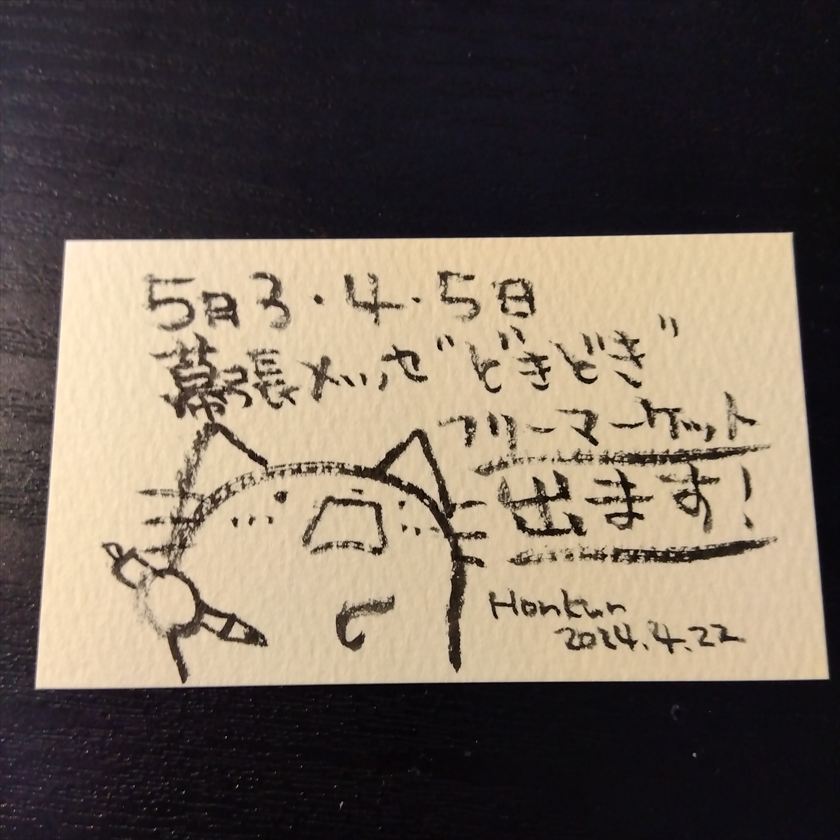 5日3・4・5日
幕張メッセ"どきどき"
フリーマーケット
出ます!
Honkun
2024.4.22